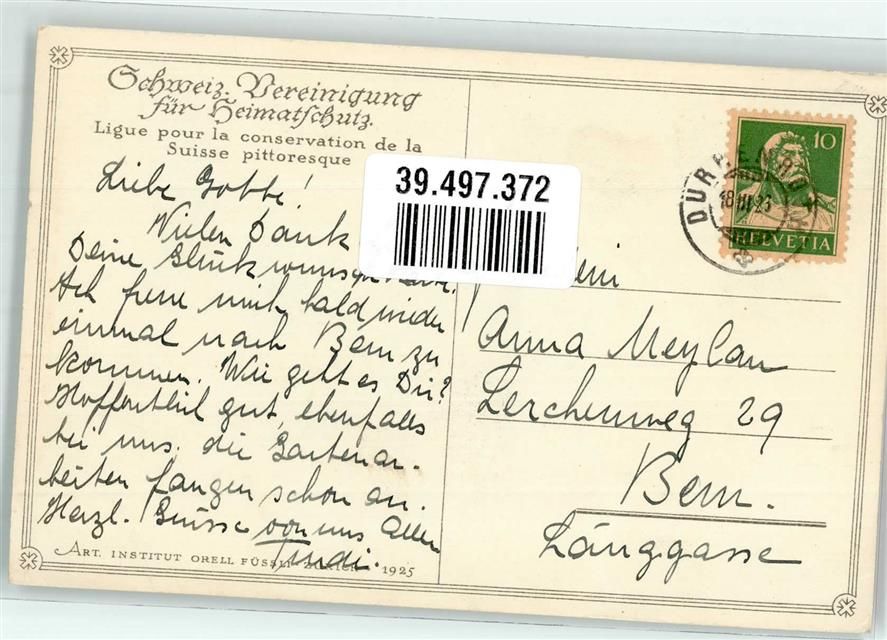 Schweiz. Vereinigung
für Heimatschutz.
Ligue pour la conservation de la
Suisse pittoresque
39.497.372
10
HELVETIA
18.III.
Liebe Gotte!
Vielen Dank
Deine
Ich freue mich bald wieder
einmal nach Bern zu
kommen. Wie geht es Dir?
Hoffentlich gut, ebenfalls
bei uns. die Gartenar-
beiten fangen schon an.
Herzl. Grüsse von uns Allen
Trudi.
Anna Meylan
Lerchenweg 29
Bern.
Länggasse
ART. INSTITUT ORELL FÜSSLI 1925